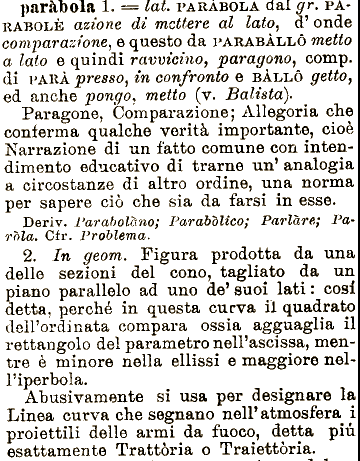 paràbola 1. = lat. PARÀBOLA dal gr. PA-
RABOLÈ azione di mettere al lato, d'onde
comparazione, e questo da PARABÀLLÔ metto
a lato e quindi ravvicino, paragono, comp.
di PARÀ presso, in confronto e BÀLLÔ getto,
ed anche pongo, metto (v. Balista).
Paragone, Comparazione; Allegoria che
conferma qualche verità importante, cioè
Narrazione di un fatto comune con inten-
dimento educativo di trarne un' analogia
a circostanze di altro ordine, una norma
per sapere ciò che sia da farsi in esse.
Deriv. Parabolàno; Parabòlico; Parlàre; Pa-
ròla. Cfr. Problema.
2. In geom. Figura prodotta da una
delle sezioni del cono, tagliato da un
piano parallelo ad uno de' suoi lati: così
detta, perché in questa curva il quadrato
dell'ordinata compara ossia agguaglia il
rettangolo del parametro nell'ascissa, men-
tre è minore nella ellissi e maggiore nel-
l'iperbola.
Abusivamente si usa per designare la
Linea curva che segnano nell'atmosfera i
proiettili delle armi da fuoco, detta più
esattamente Trattòria o Traiettòria.